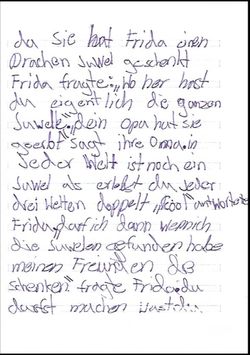 da Sie hat Frida einen
Drachen Juwel geschenkt
Frida fragte: „Wo her hast
du eigentlich die ganzen
Juwele" „dein Opa hat sie
geerbt sagt ihre Oma. in
Jeder Welt ist noch ein
Juwel als erbst du jeder
drei Welten doppelt „Cool" antwortete
Frida „darf ich dann wen ich
die Juwelen gefunden habe
meinen Freunden die
schenken" fragte Frida. du
darfst machen